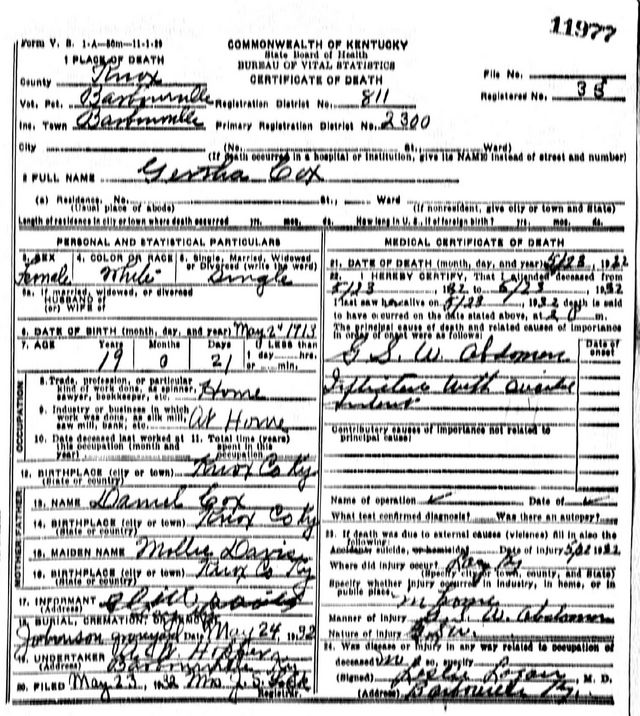 11977
Form V. S. 1-A—50m—11-1-29
COMMONWEALTH OF KENTUCKY
State Board of Health
BUREAU OF VITAL STATISTICS
CERTIFICATE OF DEATH
1 PLACE OF DEATH
County Knox
File No.
Vot. Pct. Barbourville Registration District No. 811
Registered No. 38
Inc. Town Barbourville Primary Registration District No. 2300
City (No. St., Ward)
(If death occurred in a hospital or institution, give its NAME instead of street and number)
2 FULL NAME Cox
(a) Residence. No. St., Ward
(Usual place of abode) (If nonresident, give city or town and State)
Length of residence in city or town where death occurred yrs. mos. ds. How long in U. S., if of foreign birth? yrs. mos. ds.
PERSONAL AND STATISTICAL PARTICULARS
3. SEX Female
4. COLOR OR RACE White
5. Single, Married, Widowed or Divorced (write the word) Single
5a. If married, widowed, or divorced
HUSBAND of
(or) WIFE of
6. DATE OF BIRTH (month, day, and year) May 2d 1913
7. AGE Years Months Days If LESS than
19 0 21 1 day hrs.
or min.
OCCUPATION
8. Trade, profession, or particular
kind of work done, as spinner,
sawyer, bookkeeper, etc. Home
9. Industry or business in which
work was done, as silk mill,
saw mill, bank, etc. At Home
10. Date deceased last worked at
this occupation (month and
year)
11. Total time (years)
spent in this
occupation
12. BIRTHPLACE (city or town) Knox Co Ky
(State or country)
FATHER
13. NAME Daniel Cox
14. BIRTHPLACE (city or town) Knox Co Ky
(State or country)
MOTHER
15. MAIDEN NAME Mollie Davis
16. BIRTHPLACE (city or town) Knox Co Ky
(State or country)
17. INFORMANT
(Address)
18. BURIAL, CREMATION, OR REMOVAL
Johnson graveyard Date May 24, 1932
19. UNDERTAKER Hopper
(Address) Barbourville Ky
20. FILED May 23, 1932 Mrs. J. S.
Registrar.
MEDICAL CERTIFICATE OF DEATH
21. DATE OF DEATH (month, day, and year) 5/23, 1932
22. I HEREBY CERTIFY, That I attended deceased from
5/23, 1932 to 5/23, 1932
I last saw her alive on 5/23, 1932 death is said
to have occurred on the date stated above, at m.
The principal cause of death and related causes of importance
in order of onset were as follows:
Date of onset
G. S. W. Abdomen
with suicide
intent
Contributory causes of importance not related to
principal cause:
Name of operation Date of
What test confirmed diagnosis? Was there an autopsy?
23. If death was due to external causes (violence) fill in also the
following:
Accident, suicide, or homicide Date of injury 1932
Where did injury occur? Ky
(Specify city or town, county, and State)
Specify whether injury occurred in industry, in home, or in
public place.
Home
Manner of Injury G. S. W. Abdomen
Nature of Injury G. S. W.
24. Was disease or injury in any way related to occupation of
deceased? If so, specify
(Signed) Logan, M. D.
(Address) Barbourville Ky.